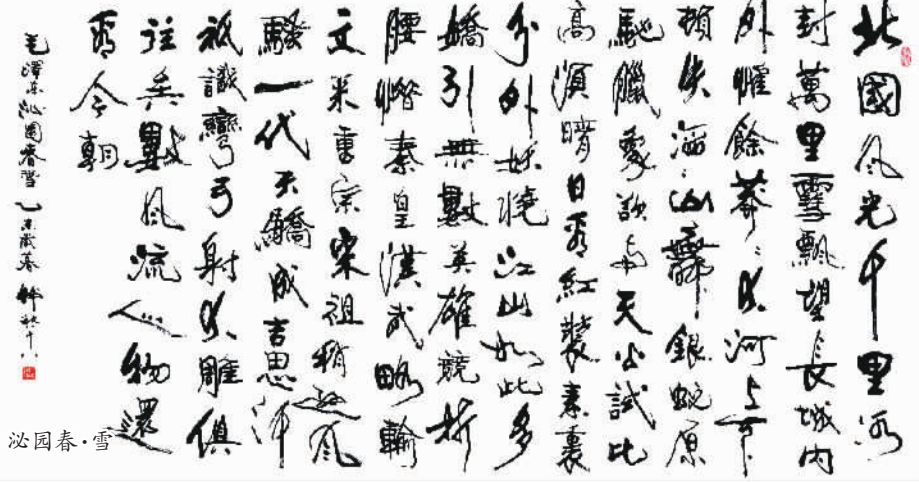 北國風光千里冰
封萬里雪飄望長城內
外惟餘莽〻大河上下
頓失滔〻山舞銀蛇原
馳臘象欲与天公試比
高須晴日看紅裝素裹
分外妖嬈江山如此多
嬌引無數英雄競折
腰惜秦皇漢武略輸
文采唐宗宋祖稍遜風
騷一代天驕成吉思汗
祇識彎弓射大雕俱
往矣數風流人物還
看今朝
毛澤东沁園春雪乙未歲暮
泌园春·雪